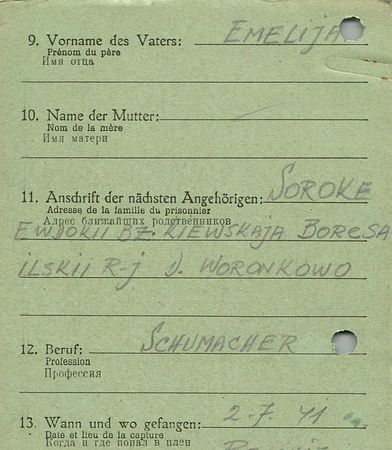 9. Vorname des Vaters: EMELIJA
Prénom du père
Имя отца
10. Name der Mutter:
Nom de la mère
Имя матери
11. Anschrift der nächsten Angehörigen: SOROKE
Adresse de la famille du prisonnier
Адрес ближайших родственников
EWDOKII BZ. KIEWSKAJA BORESA
ILSKII R-j D. WORONKOWO
12. Beruf: SCHUMACHER
Profession
Профессия
13. Wann und wo gefangen: 2.7.41
Date et lieu de la capture
Когда и где попал в плен